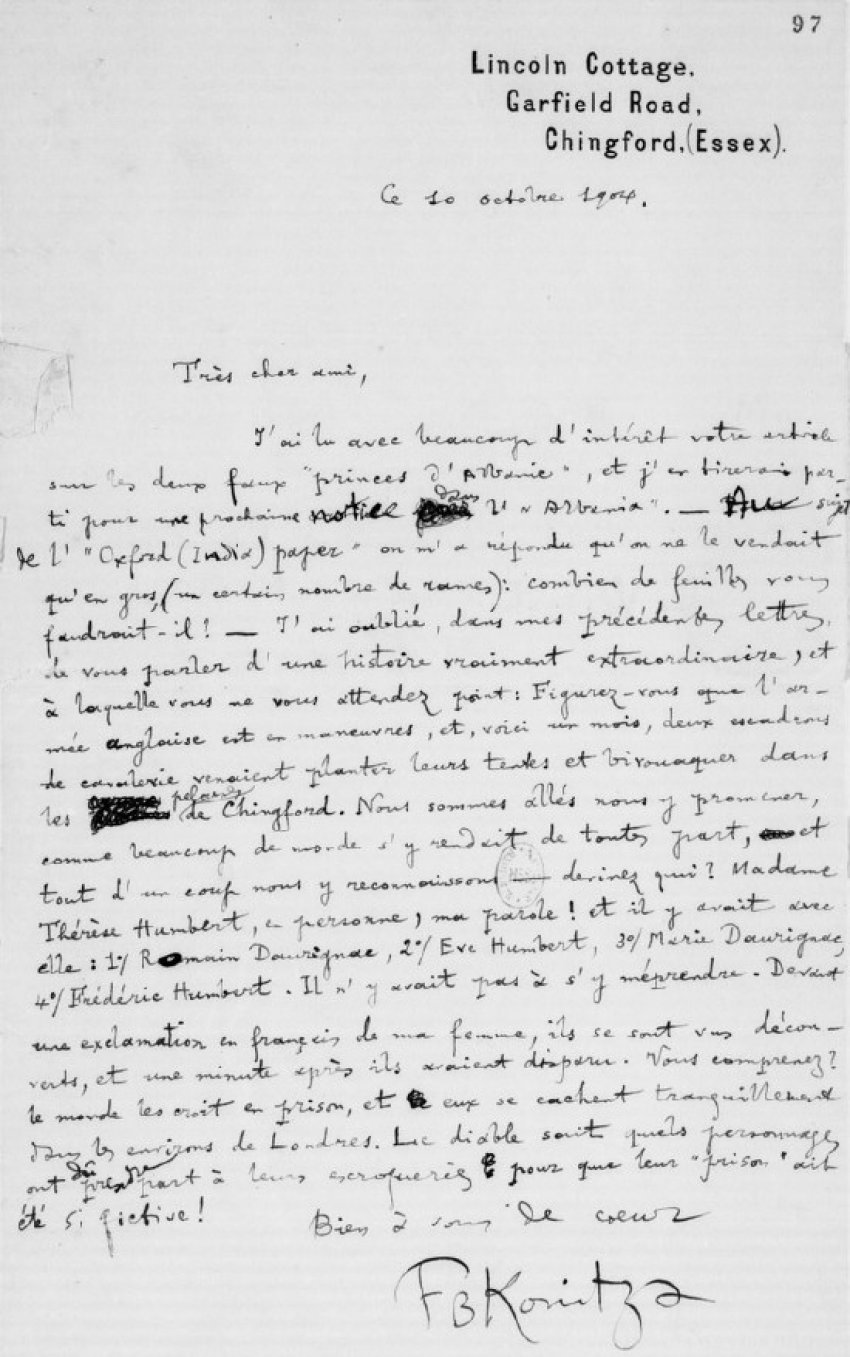 97
Lincoln Cottage,
Garfield Road,
Chingford, (Essex).
Ce 10 octobre 1904.
Très cher ami,
J'ai lu avec beaucoup d'intérêt votre article
sur les deux faux "princes d'Albanie", et j'en tirerai par-
ti pour une prochaine notice dans l'"Albania". — Au sujet
de l'"Oxford (India) paper" on m'a répondu qu'on ne le vendait
qu'en gros, (un certain nombre de rames): combien de feuilles vous
faudrait-il? — J'ai oublié, dans mes précédentes lettres,
de vous parler d'une histoire vraiment extraordinaire, et
à laquelle vous ne vous attendez point: Figurez-vous que l'ar-
mée anglaise est en manœuvres, et, voici un mois, deux escadrons
de cavalerie venaient planter leurs tentes et bivouaquer dans
les pelouses de Chingford. Nous sommes allés nous y promener,
comme beaucoup de monde s'y rendait de toutes part, et
tout d'un coup nous y reconnaissons — devinez qui? Madame
Thérèse Humbert, en personne, ma parole! et il y avait avec
elle: 1º/ Romain Daurignac, 2º/ Eve Humbert, 3º/ Marie Daurignac,
4º/ Frédéric Humbert. Il n'y avait pas à s'y méprendre. Devant
une exclamation en français de ma femme, ils se sont vus décou-
verts, et une minute après ils avaient disparu. Vous comprenez?
le monde les croit en prison, et eux se cachent tranquillement
dans les environs de Londres. Le diable sait quels personnages
ont dû prendre part à leurs escroqueries pour que leur "prison" ait
été si fictive!
Bien à vous de coeur
FBKonitza